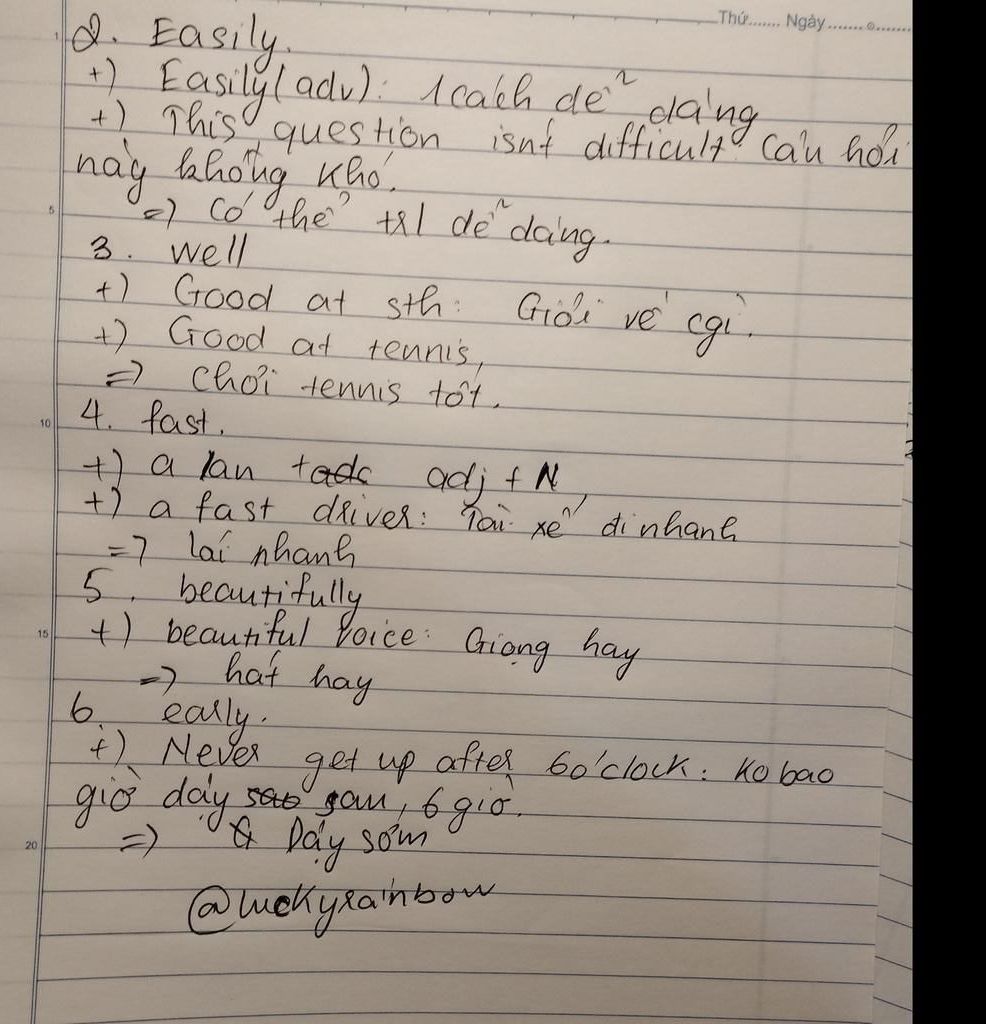 Thứ....... Ngày...............
2. Easily.
+) Easily (adv): 1 cách dễ dàng
+) This question isn't difficult: Câu hỏi
này không khó.
=) Có thể trl dễ dàng.
5
3. well
+) Good at sth: Giỏi về cgì.
+) Good at tennis,
=) Chơi tennis tốt.
10
4. fast.
+) a adj + N
+) a fast driver: Tài xế đi nhanh
=) lái nhanh
5. beautifully
15
+) beautiful voice: Giọng hay
=) hát hay
6. early.
+) Never get up after 6 o'clock: Ko bao
giờ dậy sau 6 giờ.
20
=) Dậy sớm
@luckyrainbow